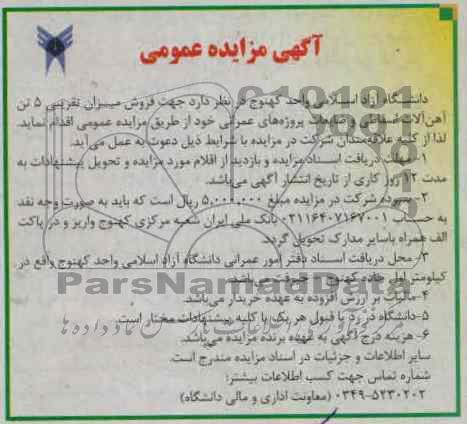 آگهی مزایده عمومی
دانشگاه آزاد اسلامی واحد کهنوج در نظر دارد جهت فروش میزان تقریبی ۵ تن
آهن‌آلات اسقاطی و ضایعات پروژه‌های عمرانی خود از طریق مزایده عمومی اقدام نماید.
لذا از کلیه علاقه‌مندان شرکت در مزایده با شرایط ذیل دعوت به عمل می‌آید.
۱- مهلت دریافت اسناد مزایده و بازدید از اقلام مورد مزایده و تحویل پیشنهادات به
مدت ۱۲ روز کاری از تاریخ انتشار آگهی می‌باشد.
۲- سپرده شرکت در مزایده مبلغ ۵,۰۰۰,۰۰۰ ریال است که باید به صورت وجه نقد
به حساب ۰۲۱۱۶۴۰۷۱۶۷۰۰۱ بانک ملی ایران شعبه مرکزی کهنوج واریز و در پاکت
الف همراه باسایر مدارک تحویل گردد.
۳- محل دریافت اسناد دفتر امور عمرانی دانشگاه آزاد اسلامی واحد کهنوج واقع در
کیلومتر اول جاده کهنوج - جیرفت می‌باشد.
۴- مالیات بر ارزش افزوده به عهده خریدار می‌باشد.
۵- دانشگاه در رد یا قبول هر یک یا کلیه پیشنهادات مختار است.
۶- هزینه درج آگهی به عهده برنده مزایده می‌باشد.
سایر اطلاعات و جزئیات در اسناد مزایده مندرج است.
شماره تماس جهت کسب اطلاعات بیشتر:
۰۳۴۹-۵۲۳۰۲۰۲ (معاونت اداری و مالی دانشگاه)
ParsNamadData